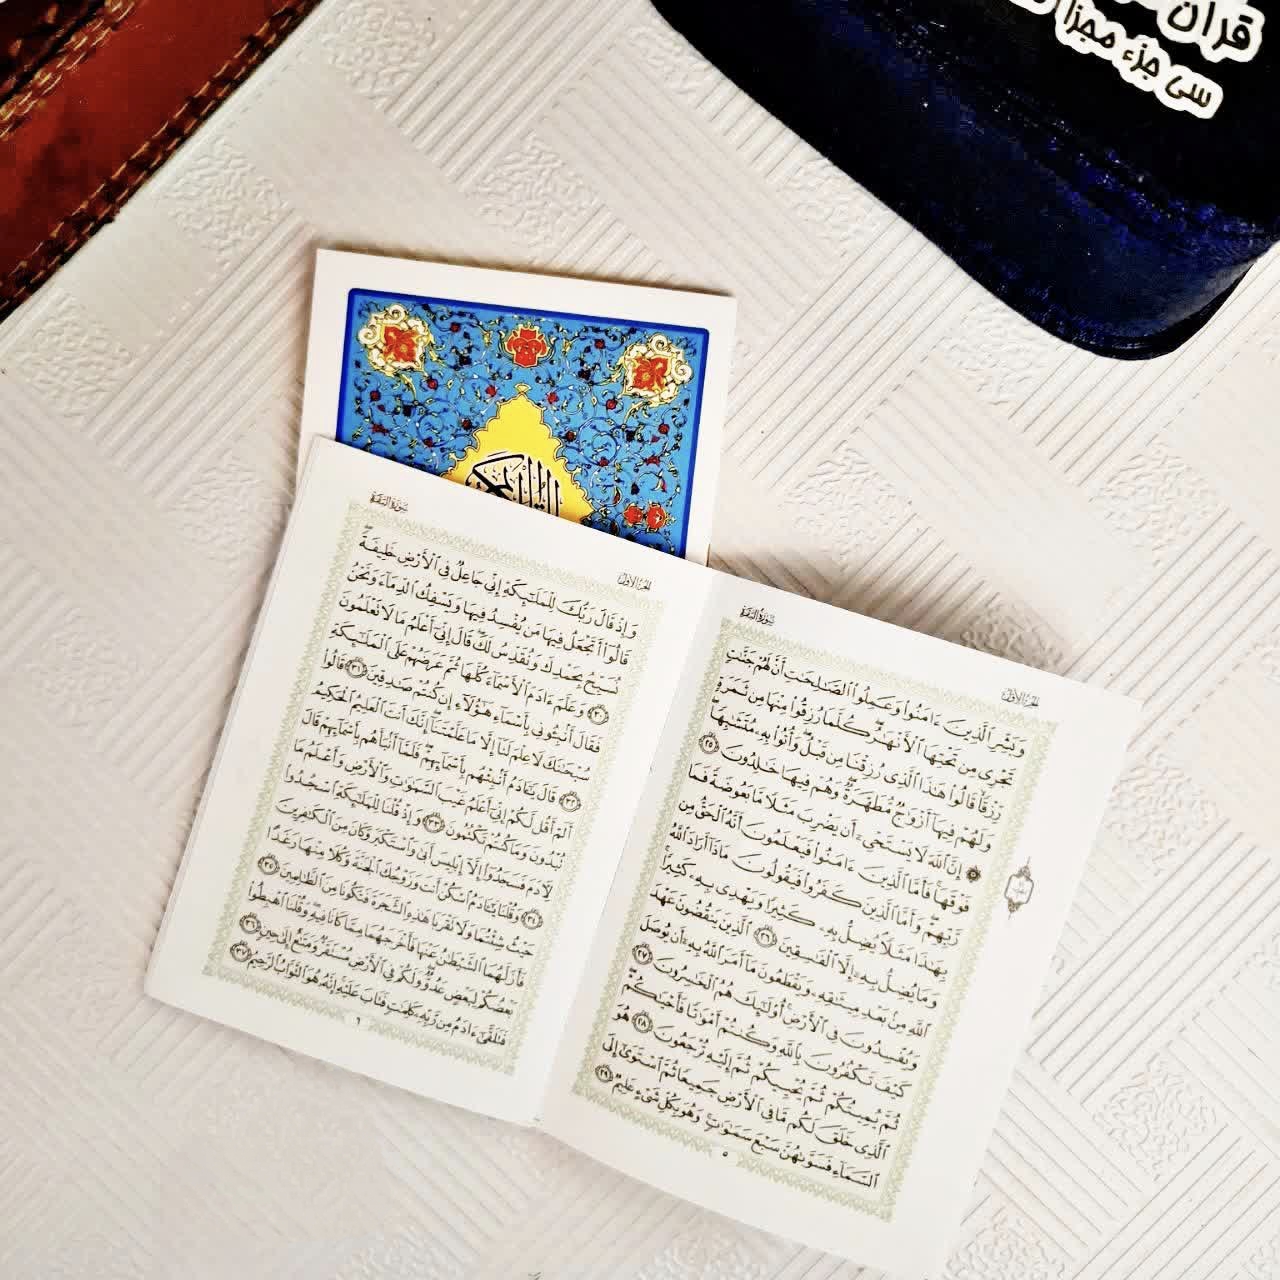 قرآن
سی جزء مجزا
سُورَةُ البَقَرَةِ
الجُزءُ الأوّلُ
وَبَشِّرِ ٱلَّذِينَ ءَامَنُوا۟ وَعَمِلُوا۟ ٱلصَّٰلِحَٰتِ أَنَّ لَهُمْ جَنَّٰتٍ
تَجْرِى مِن تَحْتِهَا ٱلْأَنْهَٰرُ ۖ كُلَّمَا رُزِقُوا۟ مِنْهَا مِن ثَمَرَةٍ
رِّزْقًا ۙ قَالُوا۟ هَٰذَا ٱلَّذِى رُزِقْنَا مِن قَبْلُ ۖ وَأُتُوا۟ بِهِۦ مُتَشَٰبِهًا ۖ
وَلَهُمْ فِيهَآ أَزْوَٰجٌ مُّطَهَّرَةٌ ۖ وَهُمْ فِيهَا خَٰلِدُونَ ٢٥
۞ إِنَّ ٱللَّهَ لَا يَسْتَحْىِۦٓ أَن يَضْرِبَ مَثَلًا مَّا بَعُوضَةً فَمَا
فَوْقَهَا ۚ فَأَمَّا ٱلَّذِينَ ءَامَنُوا۟ فَيَعْلَمُونَ أَنَّهُ ٱلْحَقُّ مِن
رَّبِّهِمْ ۖ وَأَمَّا ٱلَّذِينَ كَفَرُوا۟ فَيَقُولُونَ مَاذَآ أَرَادَ ٱللَّهُ
بِهَٰذَا مَثَلًا ۘ يُضِلُّ بِهِۦ كَثِيرًا وَيَهْدِى بِهِۦ كَثِيرًا ۚ
وَمَا يُضِلُّ بِهِۦٓ إِلَّا ٱلْفَٰسِقِينَ ٢٦ ٱلَّذِينَ يَنقُضُونَ عَهْدَ
ٱللَّهِ مِنۢ بَعْدِ مِيثَٰقِهِۦ وَيَقْطَعُونَ مَآ أَمَرَ ٱللَّهُ بِهِۦٓ أَن يُوصَلَ
وَيُفْسِدُونَ فِى ٱلْأَرْضِ ۚ أُو۟لَٰٓئِكَ هُمُ ٱلْخَٰسِرُونَ ٢٧
كَيْفَ تَكْفُرُونَ بِٱللَّهِ وَكُنتُمْ أَمْوَٰتًا فَأَحْيَٰكُمْ ۖ
ثُمَّ يُمِيتُكُمْ ثُمَّ يُحْيِيكُمْ ثُمَّ إِلَيْهِ تُرْجَعُونَ ٢٨ هُوَ
ٱلَّذِى خَلَقَ لَكُم مَّا فِى ٱلْأَرْضِ جَمِيعًا ثُمَّ ٱسْتَوَىٰٓ إِلَى
ٱلسَّمَآءِ فَسَوَّىٰهُنَّ سَبْعَ سَمَٰوَٰتٍ ۚ وَهُوَ بِكُلِّ شَىْءٍ عَلِيمٌ ٢٩
٥
سُورَةُ البَقَرَةِ
الجُزءُ الأوّلُ
وَإِذْ قَالَ رَبُّكَ لِلْمَلَٰٓئِكَةِ إِنِّى جَاعِلٌ فِى ٱلْأَرْضِ خَلِيفَةً ۖ
قَالُوٓا۟ أَتَجْعَلُ فِيهَا مَن يُفْسِدُ فِيهَا وَيَسْفِكُ ٱلدِّمَآءَ وَنَحْنُ
نُسَبِّحُ بِحَمْدِكَ وَنُقَدِّسُ لَكَ ۖ قَالَ إِنِّىٓ أَعْلَمُ مَا لَا تَعْلَمُونَ
٣٠ وَعَلَّمَ ءَادَمَ ٱلْأَسْمَآءَ كُلَّهَا ثُمَّ عَرَضَهُمْ عَلَى ٱلْمَلَٰٓئِكَةِ
فَقَالَ أَنۢبِـُٔونِى بِأَسْمَآءِ هَٰٓؤُلَآءِ إِن كُنتُمْ صَٰدِقِينَ ٣١ قَالُوا۟
سُبْحَٰنَكَ لَا عِلْمَ لَنَآ إِلَّا مَا عَلَّمْتَنَآ ۖ إِنَّكَ أَنتَ ٱلْعَلِيمُ ٱلْحَكِيمُ
٣٢ قَالَ يَٰٓـَٔادَمُ أَنۢبِئْهُم بِأَسْمَآئِهِمْ ۖ فَلَمَّآ أَنۢبَأَهُم بِأَسْمَآئِهِمْ قَالَ
أَلَمْ أَقُل لَّكُمْ إِنِّىٓ أَعْلَمُ غَيْبَ ٱلسَّمَٰوَٰتِ وَٱلْأَرْضِ وَأَعْلَمُ مَا
تُبْدُونَ وَمَا كُنتُمْ تَكْتُمُونَ ٣٣ وَإِذْ قُلْنَا لِلْمَلَٰٓئِكَةِ ٱسْجُدُوا۟
لِـَٔادَمَ فَسَجَدُوٓا۟ إِلَّآ إِبْلِيسَ أَبَىٰ وَٱسْتَكْبَرَ وَكَانَ مِنَ ٱلْكَٰفِرِينَ
٣٤ وَقُلْنَا يَٰٓـَٔادَمُ ٱسْكُنْ أَنتَ وَزَوْجُكَ ٱلْجَنَّةَ وَكُلَا مِنْهَا رَغَدًا
حَيْثُ شِئْتُمَا وَلَا تَقْرَبَا هَٰذِهِ ٱلشَّجَرَةَ فَتَكُونَا مِنَ ٱلظَّٰلِمِينَ ٣٥
فَأَزَلَّهُمَا ٱلشَّيْطَٰنُ عَنْهَا فَأَخْرَجَهُمَا مِمَّا كَانَا فِيهِ ۖ وَقُلْنَا ٱهْبِطُوا۟
بَعْضُكُمْ لِبَعْضٍ عَدُوٌّ ۖ وَلَكُمْ فِى ٱلْأَرْضِ مُسْتَقَرٌّ وَمَتَٰعٌ إِلَىٰ حِينٍ ٣٦
فَتَلَقَّىٰٓ ءَادَمُ مِن رَّبِّهِۦ كَلِمَٰتٍ فَتَابَ عَلَيْهِ ۚ إِنَّهُۥ هُوَ ٱلتَّوَّابُ ٱلرَّحِيمُ ٣٧
٦